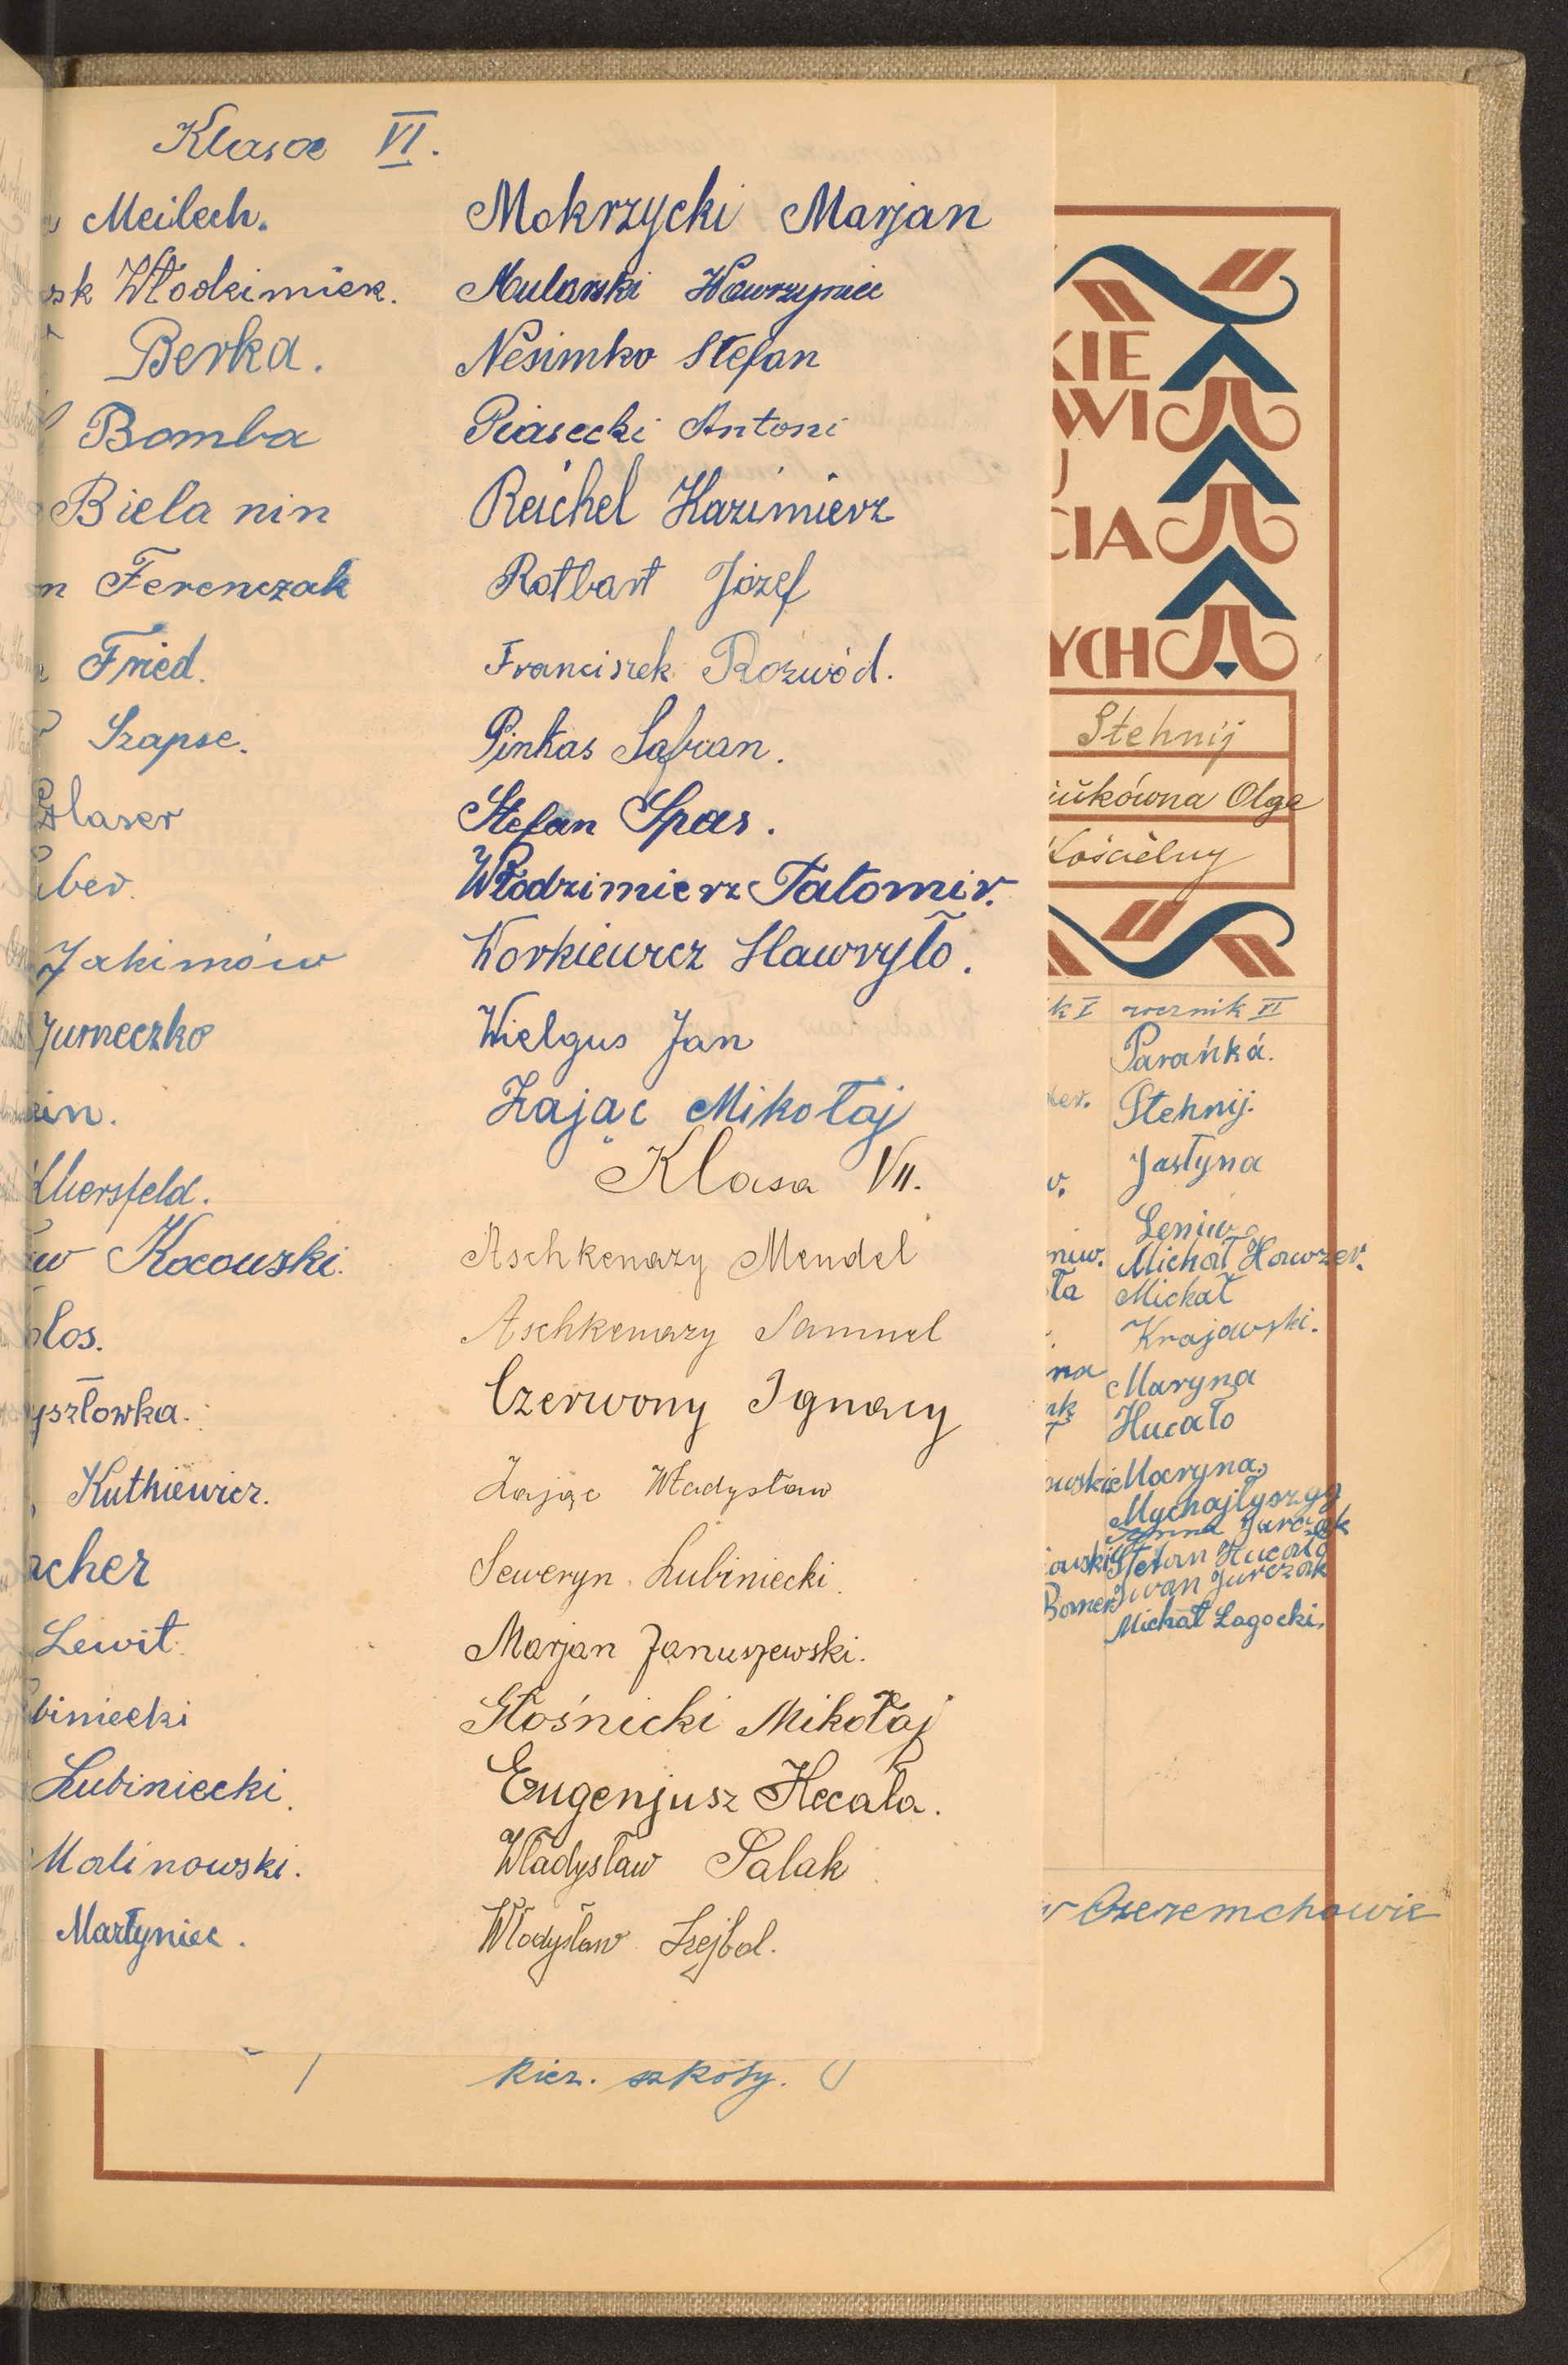 Klasa VI.
Meilech.
sk Włodzimierz.
Berka.
Bomba
Bielanin
n Ferenczak
Fried.
Szapse.
Glaser
uber.
Jakimów
Jurneczko
ein.
Khersfeld.
aw Kocowski.
olos.
yszłowka.
Kuthiewicz.
acher
Lewit.
biniecki
Lubiniecki.
Malinowski.
Martyniec.
Mokrzycki Marjan
Mularski Wawrzyniec
Nesimko Stefan
Piasecki Antoni
Reichel Kazimierz
Rotbart Józef
Franciszek Rozwód.
Pinkas Safran.
Stefan Spas.
Włodzimierz Tatomir.
Workiewicz Hawryło.
Wielgus Jan
Zając Mikołaj
Klasa VII.
Aschkenazy Mendel
Aschkenazy Samuel
Czerwony Ignacy
Zając Władysław
Seweryn Lubiniecki.
Marjan Januszewski.
Głośnicki Mikołaj
Eugenjusz Hecała.
Władysław Salak
Władysław Szejbal.
kier. szkoły.
KIE
WI
U
CIA
YCH
Stehnij
iukówna Olga
Kościelny
k V rocznik VI
Parańká.
ler. Stehnij.
Jastyna
w.
Leniw
niw. Michał Hawzer.
ła Michał
Krajowski.
na Maryna
nk Hucało
owskie Maryna
Mychajłyszyn
Jurczak
owski Stefan Hucało
Bomer Iwan Jurczak
Michał Łagocki.
w Czeremchowie